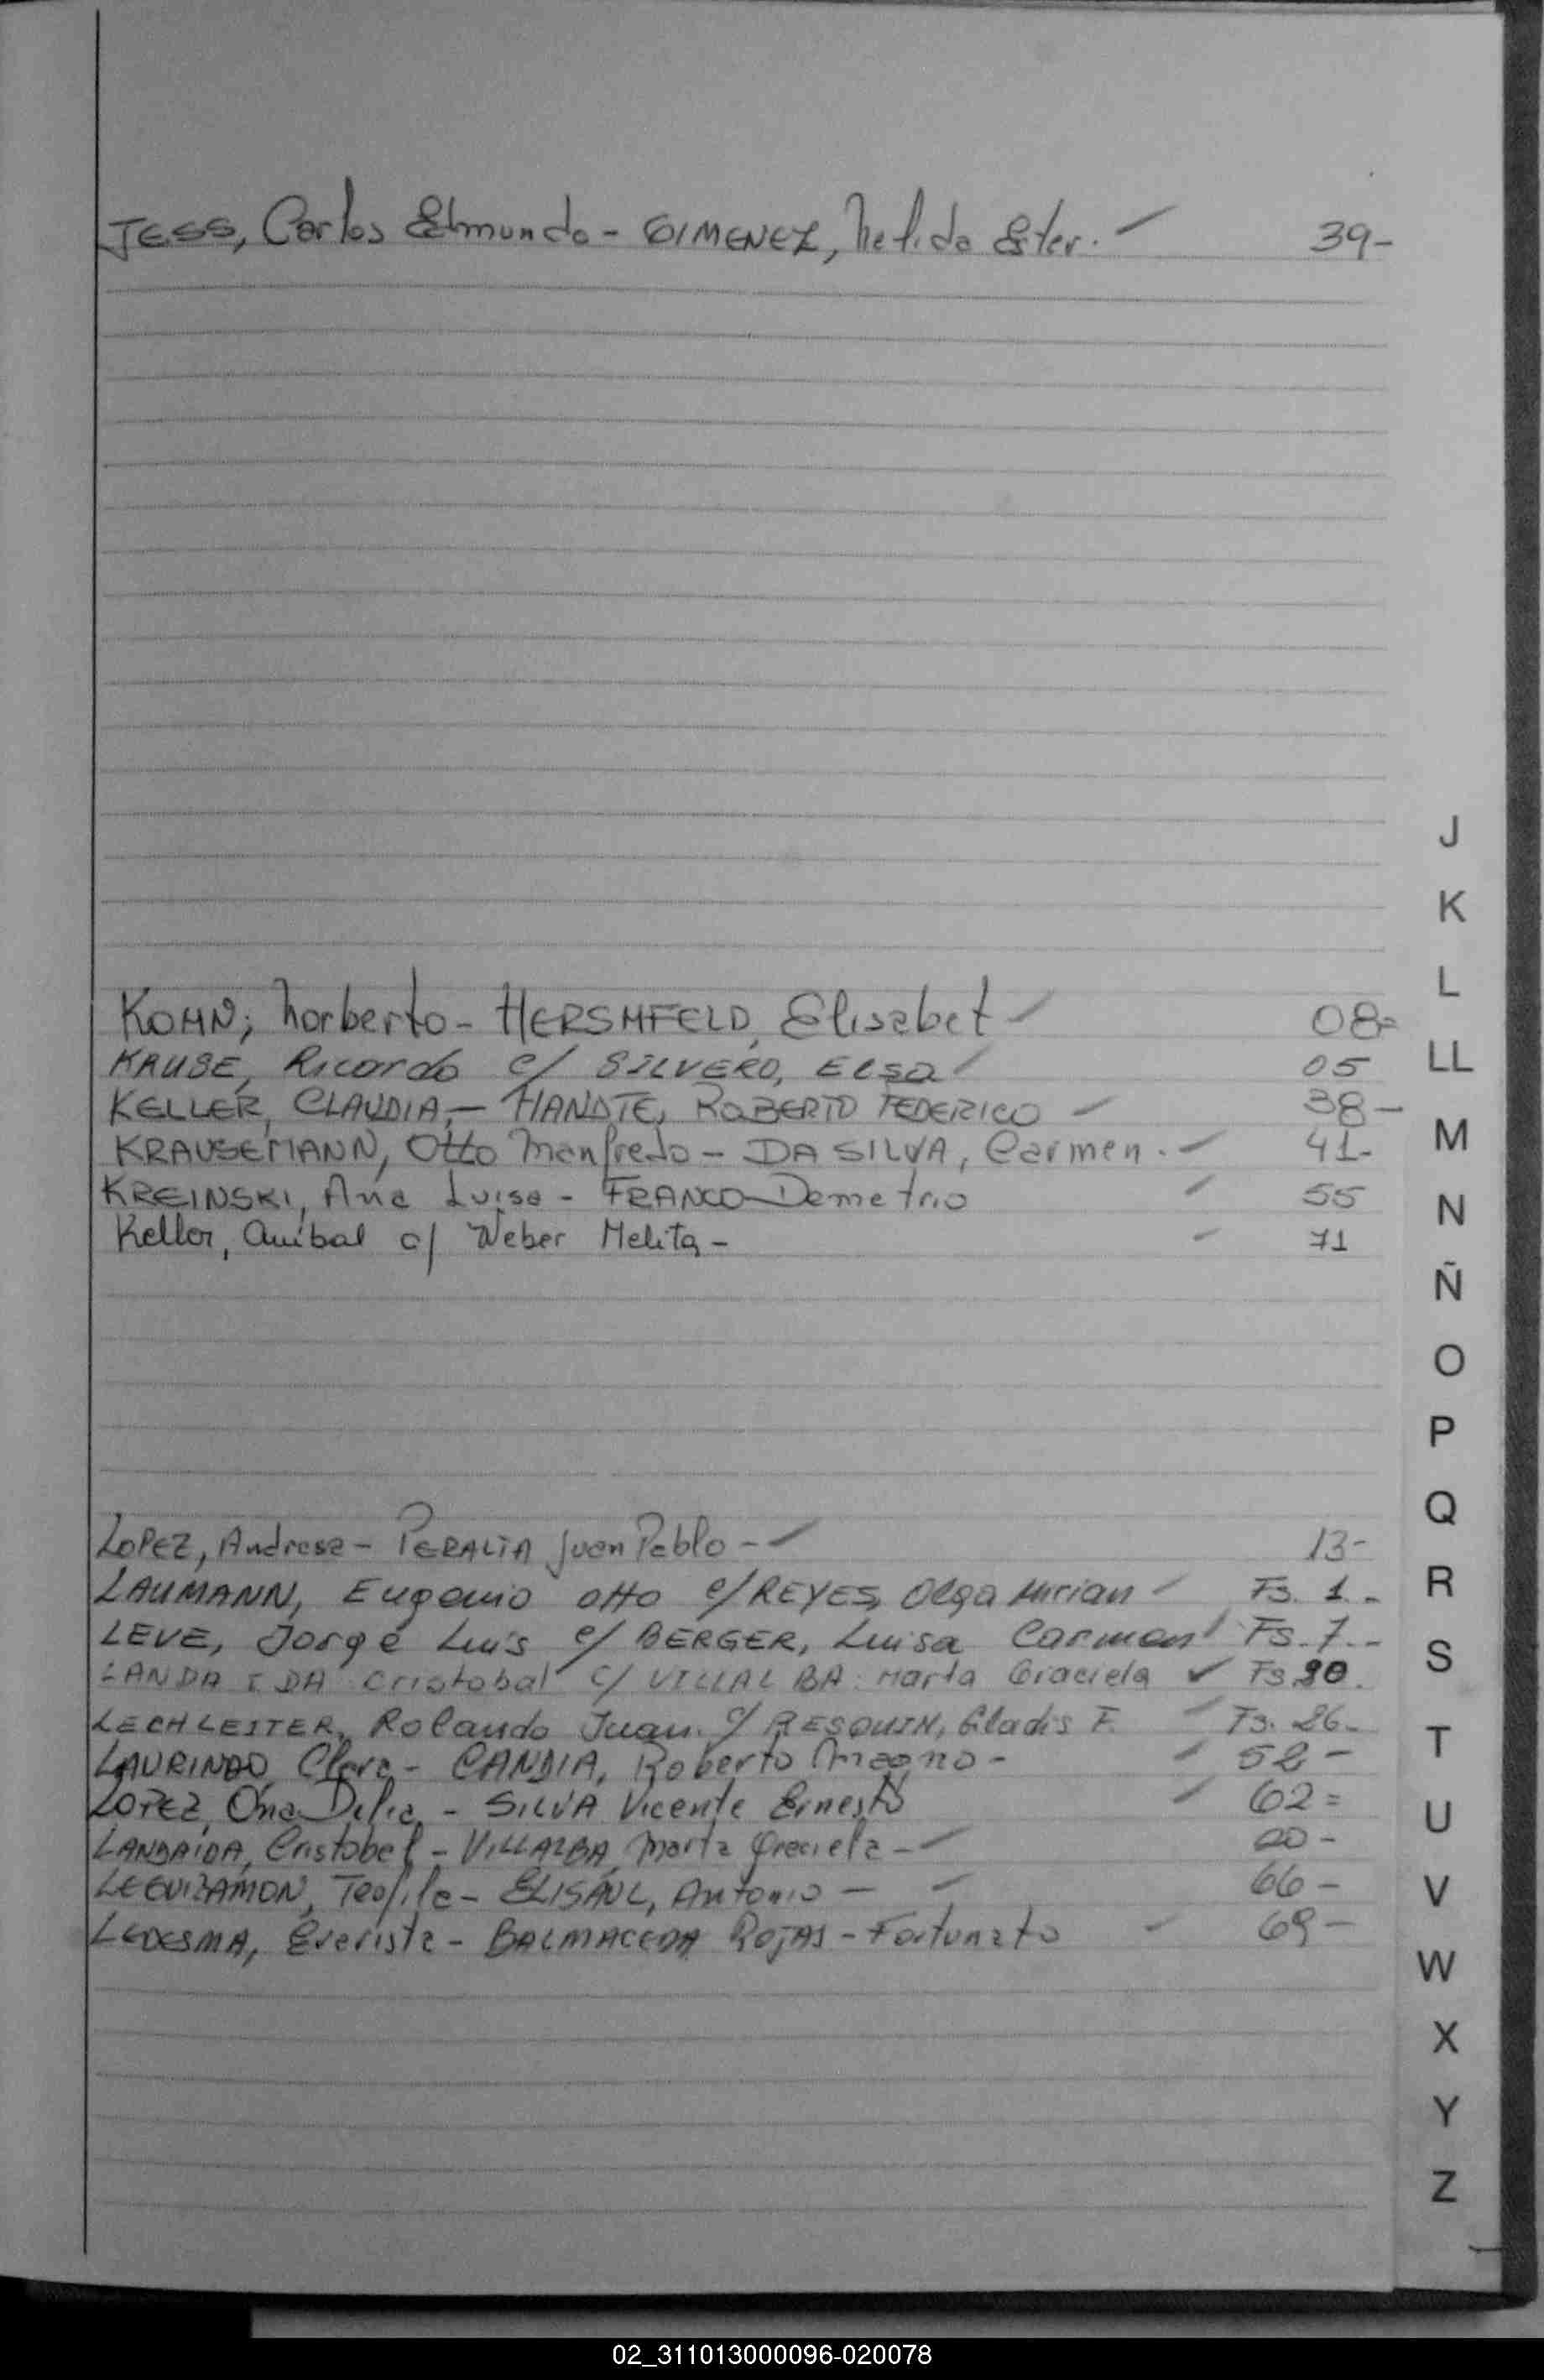 JESS, Carlos Edmundo - GIMENEZ, Nelida Ester. 39-
KOHN, Norberto - HERSHFELD, Elisabet 08=
KAUSE, Ricardo c/ SILVERO, Elsa 05
KELLER, CLAUDIA, - HANDTE, ROBERTO FEDERICO 38-
KRAUSEMANN, Otto Manfredo - DA SILVA, Carmen. 41-
KREINSKI, Ana Luisa - FRANCO Demetrio 55
Keller, Anibal c/ Weber Melita - 71
LOPEZ, Andresa - PERALTA Juan Pablo - 13-
LAUMANN, Eugenio Otto c/ REYES, Olga Mirian Fs. 1.-
LEVE, Jorge Luis c/ BERGER, Luisa Carmen Fs. 7.-
LANDA I DA Cristobal c/ VILLAL BA: Marta Graciela Fs 20.
LECHLEITER, Rolando Juan. c/ RESQUIN, Gladis F. Fs. 26-
LAURINDO, Clara - CANDIA, Roberto 52-
LOPEZ, Ana Delia, - SILVA Vicente Ernesto 62=
LANDAIDA, Cristobal - VILLALBA, Marta Graciela - 20-
LEGUIZAMON, Teofila - ELISAUL, Antonio - 66-
LEDESMA, Evarista - BALMACEDA ROJAS - Fortunato 69-
J
K
L
LL
M
N
Ñ
O
P
Q
R
S
T
U
V
W
X
Y
Z
02_311013000096-020078